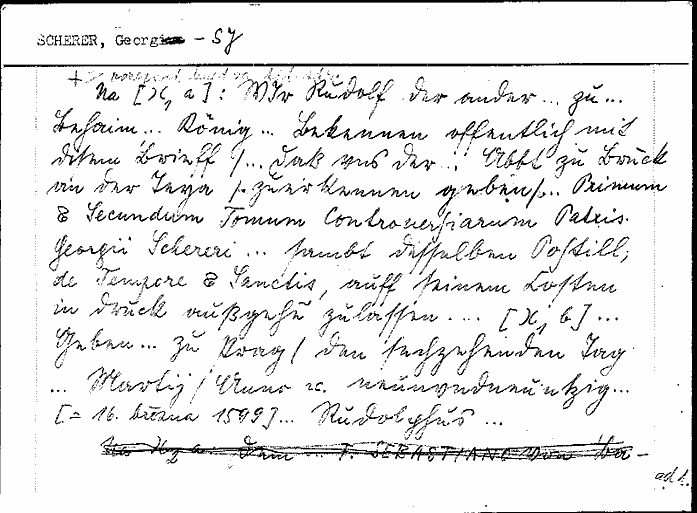 SCHERER, Georg - SJ
Na [)(, a]: WIr Rudolf der ander... zu...
Behaim... König... Bekennen offentlich mit
disem Brieff /... daß vns der... Abbt zu Bruck
an der Teya /: zuerkennen geben /... Primum
& Secundum Tomum Controuersiarum Patris
Georgii Schereri... sambt desselben Postill,
de Tempore & Sanctis, auff seinem Costen
in druck außgehn zulassen.... [)(, b]...
Geben... zu Prag / den sechzehenden Tag
... Martij / Anno 2c. neunvndneuntzig...
[= 16. března 1599]... Rudolphus...
Na a. Dem ... P. SEBASTIANO Von Ba-
ad 1.